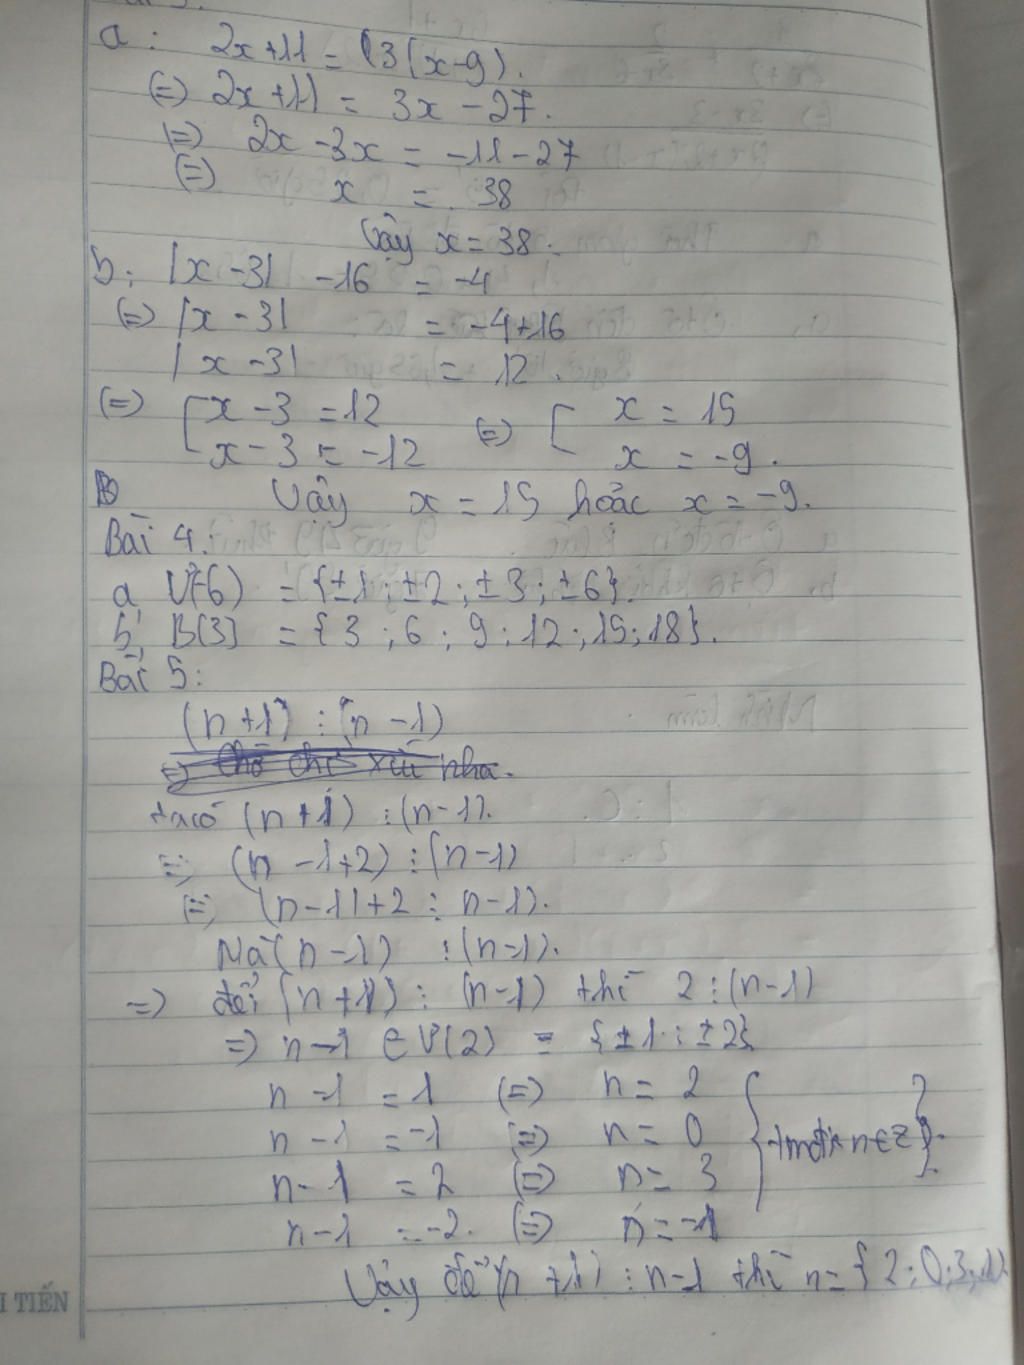 a: 2x+11 = (3(x-9).
(=) 2x+11 = 3x -27.
(=) 2x -3x = -11-27
(=) x = 38
Vậy x = 38.
b; |x -3| -16 = -4
(=) |x -3| = -4+16
|x -3| = 12.
(=) [x -3 =12 (=) [ x = 15
x -3 = -12 x = -9.
Vậy x = 15 hoặc x = -9.
Bài 4:
a, Ư(-6) = {±1 ; ±2 ; ±3 ; ±6}.
b, B(3) = {3 ; 6 ; 9 ; 12 ; 15 ; 18}.
Bài 5:
(n+1) ⋮ (n -1)
ta có (n +1) ⋮ (n-1).
(=) (n -1+2) ⋮ (n-1)
(=) (n-1)+2 ⋮ n-1).
Mà (n -1) ⋮ (n-1).
=) để (n+1) ⋮ (n-1) thì 2 ⋮ (n-1)
=) n-1 ∈ Ư(2) = {±1 ; ±2}
n -1 = 1 (=) n = 2
n -1 = -1 (=) n = 0 tmđk n∈Z
n-1 = 2 (=) n = 3
n-1 = -2. (=) n = -1
Vậy để (n +1) ⋮ n-1 thì n = { 2 ; 0 ; 3 ; -1}
I TIẾN